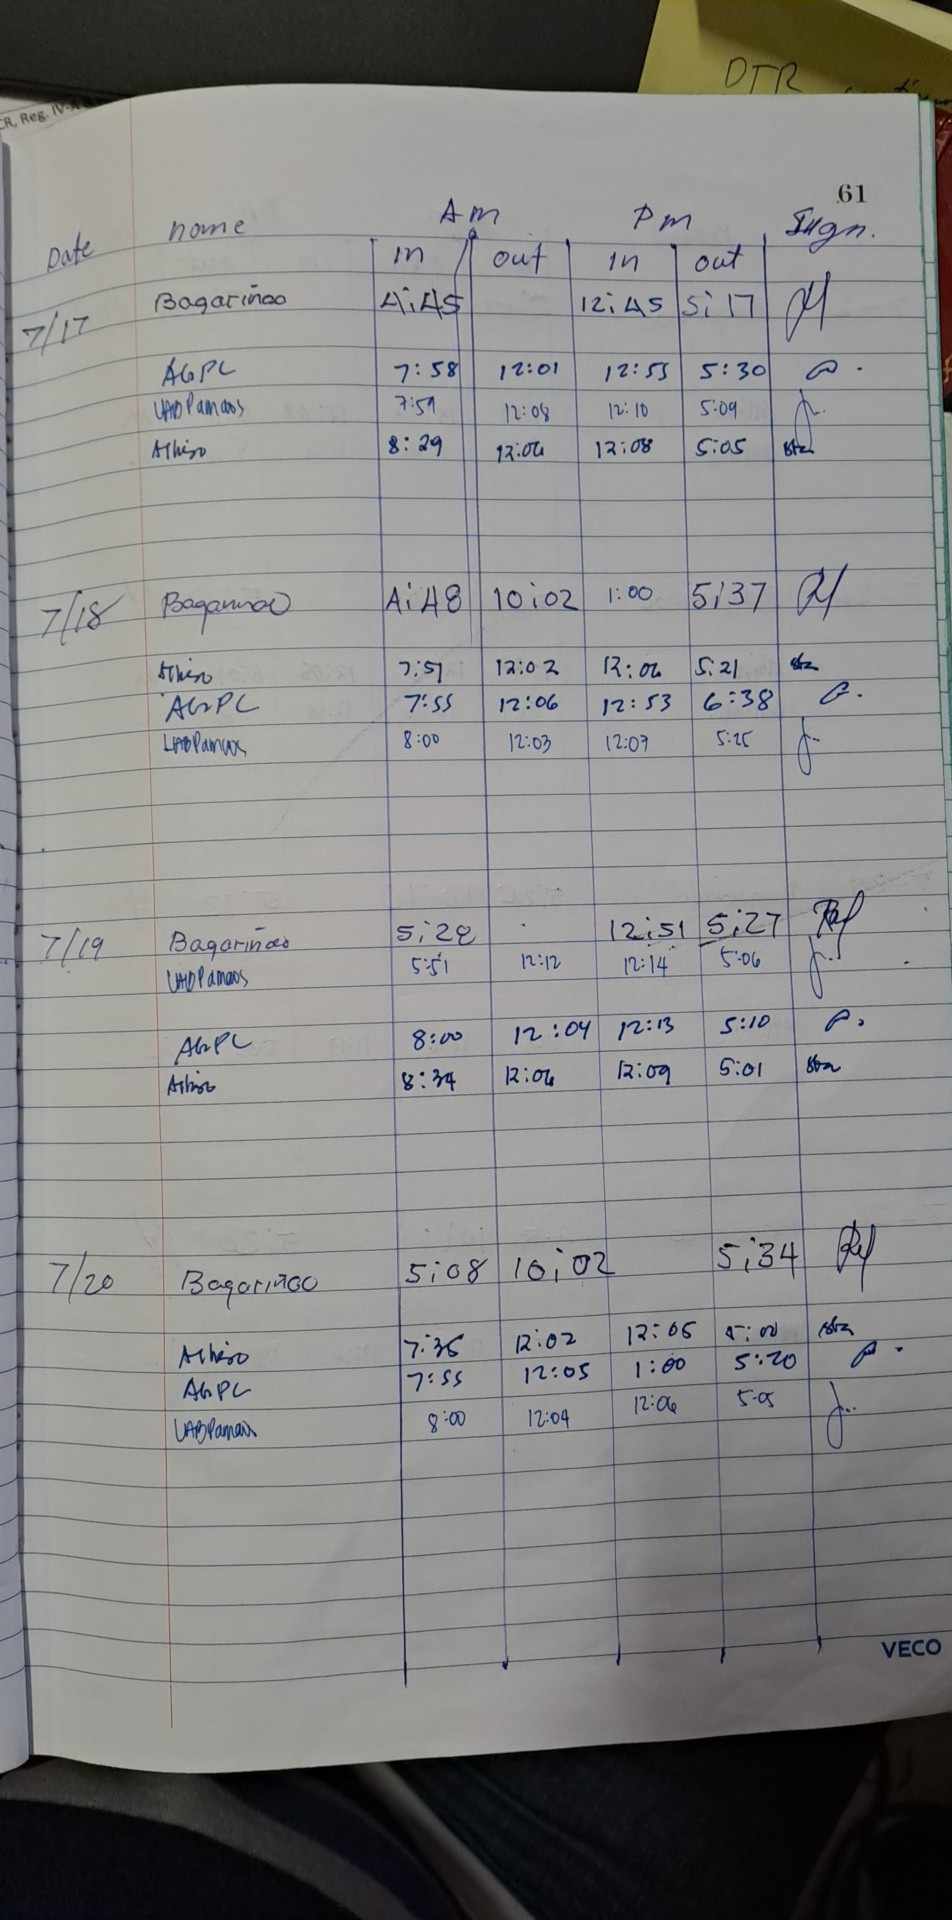 CR, Reg. IV-A
DTR
61
Date name Am Pm Sign.
in out in out
7/17 Bagariñao 4:45 12:45 5:17
AGPC 7:58 12:01 12:53 5:30
UABPamaos 7:59 12:08 12:10 5:09
8:29 12:06 12:08 5:05
7/18 Bagarinao 4:48 10:02 1:00 5:37
7:51 12:02 12:06 5:21
AGPC 7:55 12:06 12:53 6:38
UABPamaos 8:00 12:03 12:07 5:25
7/19 Bagariñao 5:28 12:51 5:27
UABPamaos 5:51 12:12 12:14 5:06
AGPC 8:00 12:04 12:13 5:10
8:34 12:06 12:09 5:01
7/20 Bagariñao 5:08 10:02 5:34
7:35 12:02 12:05 5:00
AGPC 7:55 12:05 1:00 5:20
UABPamaos 8:00 12:04 12:06 5:05
VECO